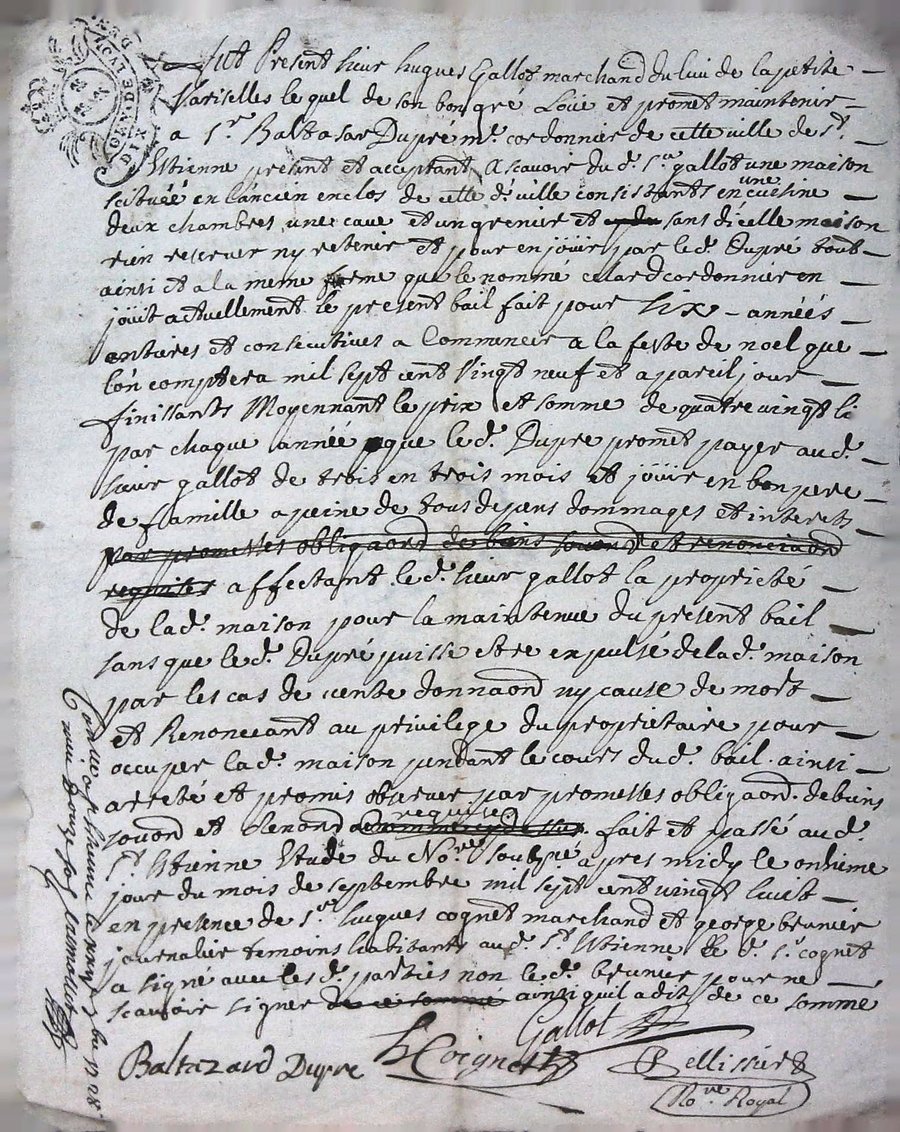 fut Present sieur hugues Gallot marchand du lieu de la petite
Variselles le quel de son bon gré Loüe et promet maintenir
a Sr. Baltasar Dupré mr. cordonnier de cette ville de St.
Etienne present et acceptant Ascavoir du d. Sr. gallot une maison
scituéé en l'ancien enclos de cette de. ville consistants en une cuisine
deux chambres une cave et un grenier et sans di celle maison
rien reserver ny retenir et pour en joüir par le d. Dupré tout
ainsi et a la meme forme que le nommé cordonnier en
joüit actuellement le present bail fait pour Six annéés
entieres et consecutives a Commencer a la feste de noel que
l'on comptera mil sept cent Vingt neuf et a pareil jour
finissants Moyennant le prix et somme de quatre vingt li
par chaque année que le d. Dupre promet payer au d.
sieur gallot de trois en trois mois et joüir en bon pere
de famille a peine de tous depens dommages et interets
par promesses obligaond de biens soumond et renonciaond
requises affectant le d. sieur gallot la propriété
de la d. maison pour la maintenue du present bail
sans que le d. Dupré puisse etre expulsé de la d. maison
par les cas de vente donnaond ny cause de mort
et Renoncant au privilege du proprietaire pour
occuper la d. maison pendant le cours du d. bail ainsi
arreté et promis observer par promesses obligaond. de biens
soumond et Renond requises fait et passé au d.
St. Etienne Etude du Nore. soubné apres midy le onsieme
jour du mois de septembre mil sept cent vingt huit
en presence de Srs. hugues cognet marchand et george brunier
journalier temoins habitants au d. St. Etienne le d. Sr. cognet
a signé avec les d. parties non le d. brunier pour ne
scavoir signer de ce sommé ainsi qu'il a dit de ce sommé
Gallot
Baltazard Dupre
h Coignet
Pellissier
Nore. Royal
DIX